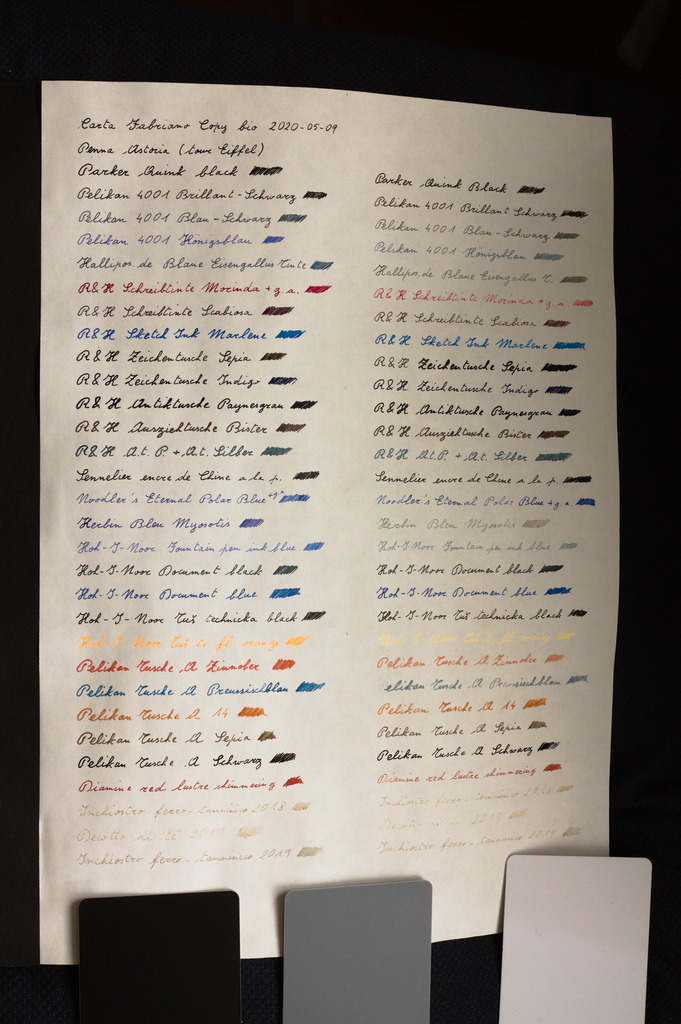 Carta Fabriano Copy bio 2020-05-09
Penna Astoria (tour Eiffel)
Parker Quink black
Pelikan 4001 Brillant-Schwarz
Pelikan 4001 Blau-Schwarz
Pelikan 4001 Königsblau
Hallipos. de Blaue Eisengallus Tinte
R&H Schreibtinte Morinda + g.a.
R&H Schreibtinte Scabiosa
R&H Sketch Ink Marlene
R&H Zeichentusche Sepia
R&H Zeichentusche Indigo
R&H Antiktusche Paynesgrau
R&H Ausziehtusche Bister
R&H A.t. P. + A.t. Silber
Sennelier encre de Chine a la p.
Noodler's Eternal Polar Blue
Herbin Bleu Myosotis
Koh-I-Noor Fountain pen ink blue
Koh-I-Noor Document black
Koh-I-Noor Document blue
Koh-I-Noor Tuš technicka black
Koh-I-Noor Tuš fl orange
Pelikan Tusche A Zinnober
Pelikan Tusche A Preussischblau
Pelikan Tusche A 14
Pelikan Tusche A Sepia
Pelikan Tusche A Schwarz
Diamine red lustre shimmering
Inchiostro ferro-tannnico 2018
Decotto di tè 2019
Inchiostro ferro-tannnico 2019
Parker Quink Black
Pelikan 4001 Brillant Schwarz
Pelikan 4001 Blau-Schwarz
Pelikan 4001 Königsblau
Hallipos. de Blaue Eisengallus T.
R&H Schreibtinte Morinda + g.a.
R&H Schreibtinte Scabiosa
R&H Sketch Ink Marlene
R&H Zeichentusche Sepia
R&H Zeichentusche Indigo
R&H Antiktusche Paynesgrau
R&H Ausziehtusche Bister
R&H A.t. P. + A.t. Silber
Sennelier encre de Chine a la p.
Noodler's Eternal Polar Blue + g.a.
Herbin Bleu Myosotis
Koh-I-Noor Fountain pen ink blue
Koh-I-Noor Document black
Koh-I-Noor Document blue
Koh-I-Noor Tuš technicka black
Koh-I-Noor Tuš fl
Pelikan Tusche A Zinnober
Pelikan Tusche A Preussischblau
Pelikan Tusche A 14
Pelikan Tusche A Sepia
Pelikan Tusche A Schwarz
Diamine red lustre shimmering
Inchiostro ferro-tannnico 2018
Decotto di tè 2019
Inchiostro ferro-tannnico 2019